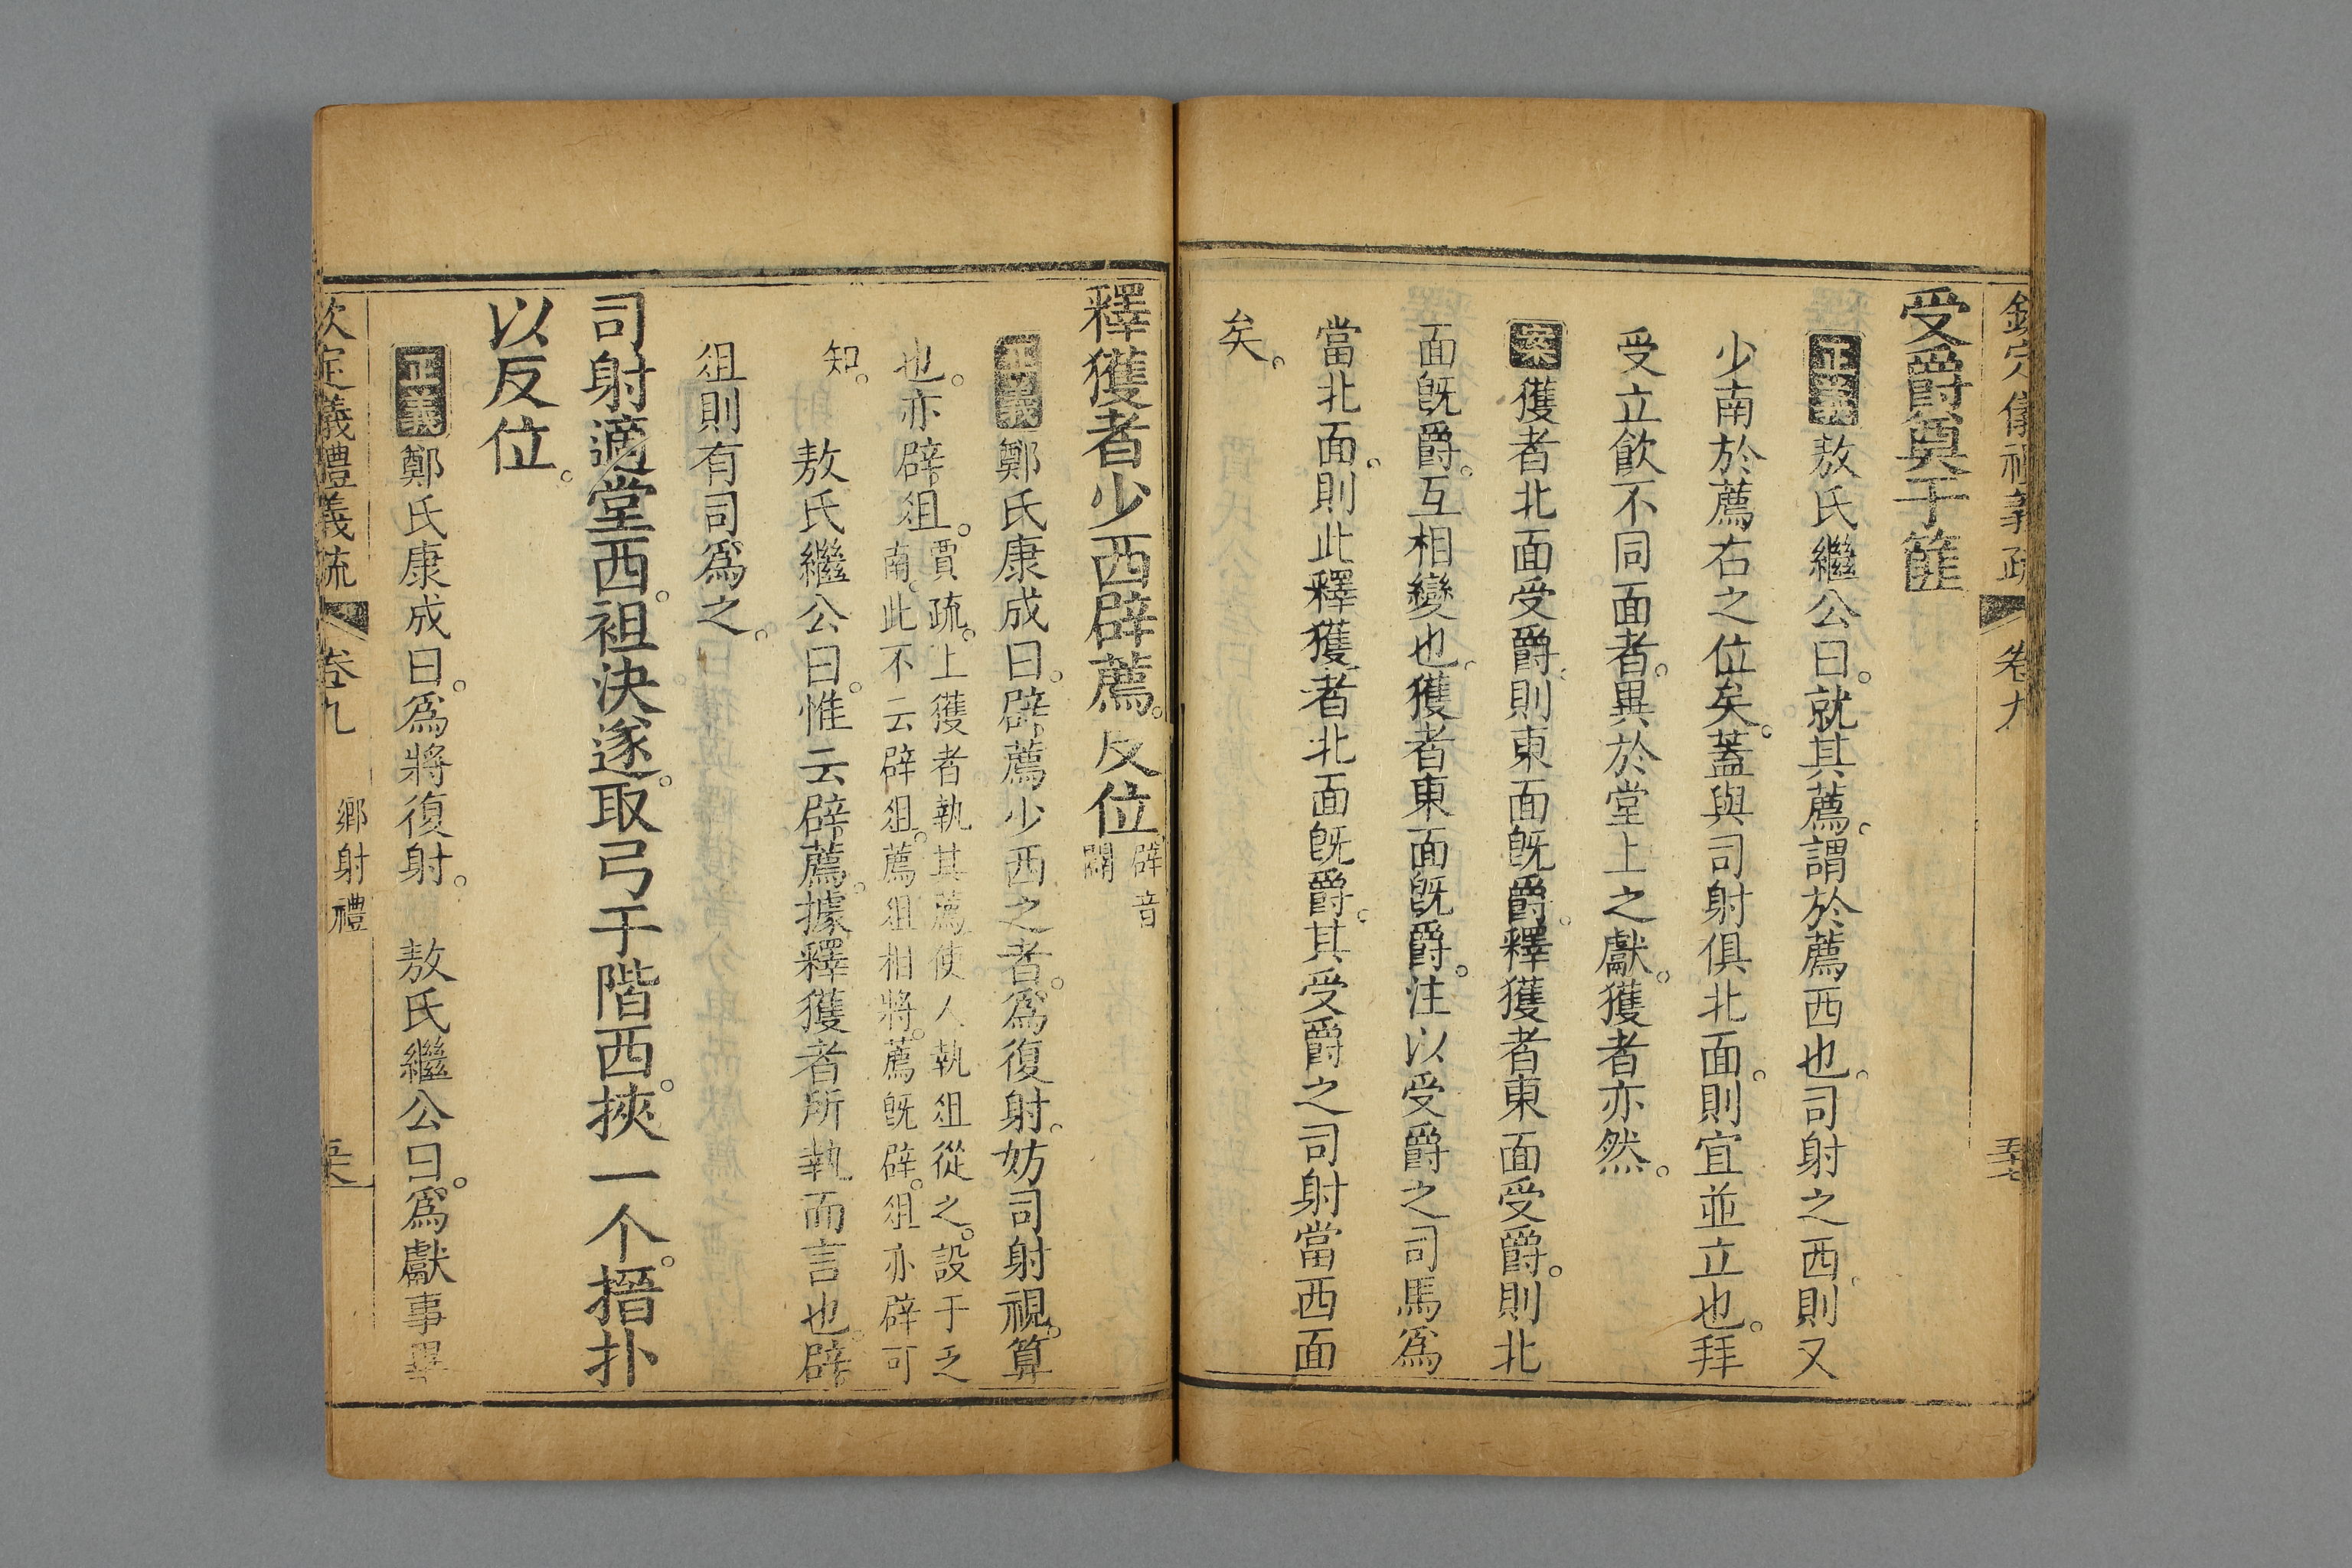 欽定儀禮義疏 卷九
受爵奠于篚
正義敖氏繼公曰。就其薦。謂於薦西也。司射之西。則又
少南於薦右之位矣。蓋與司射俱北面。則宜並立也。拜
受立飲不同面者。異於堂上之獻。獲者亦然。
案獲者北面受爵。則東面既爵。釋獲者東面受爵。則北
面既爵。互相變也。獲者東面既爵。注以受爵之司馬爲
當北面。則此釋獲者北面既爵。其受爵之司射當西面
矣。
釋獲者少西辟薦。反位辟音
闢
正義鄭氏康成曰。辟薦少西之者。爲復射。妨司射視算
也。亦辟俎。賈疏。上獲者執其薦。使人執俎從之。設于乏
南。此不云辟俎。薦俎相將。薦既辟。俎亦辟可
知。
敖氏繼公曰。惟云辟薦。據釋獲者所執而言也。辟
俎則有司爲之。
司射適堂西。袒決遂。取弓于階西。挾一个。搢扑
以反位。
正義鄭氏康成曰。爲將復射。 敖氏繼公曰。爲獻事畢
欽定儀禮義疏 卷九 鄉射禮